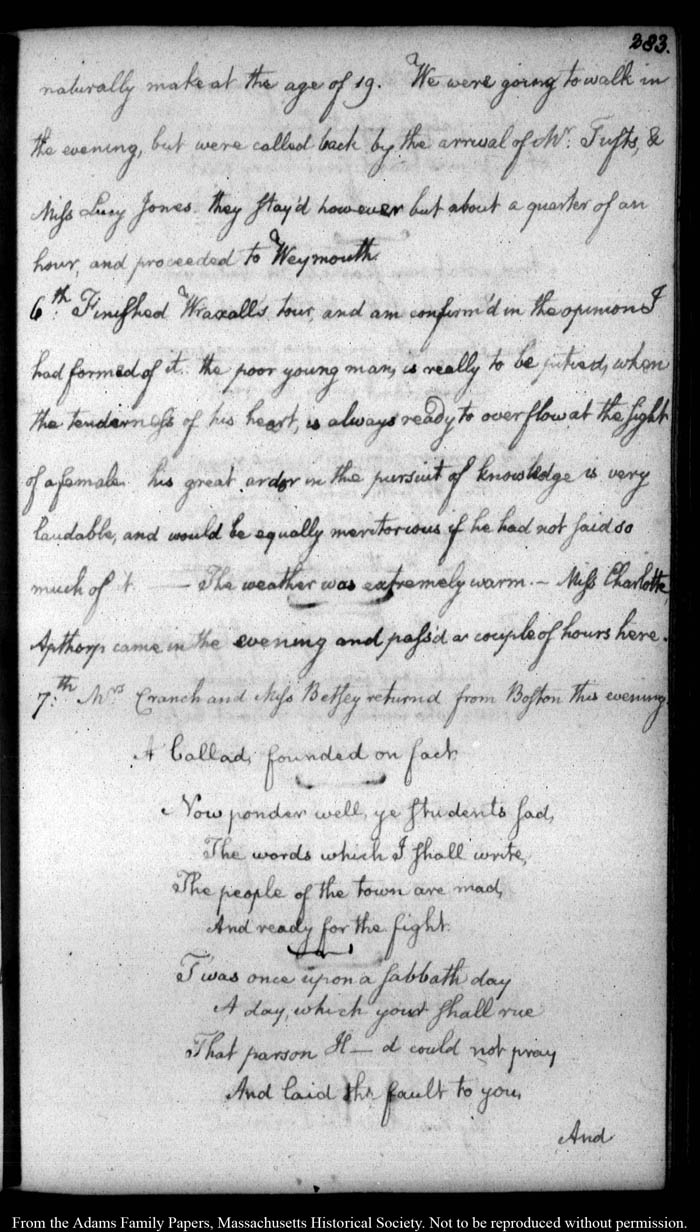 283.
naturally make at the age of 19. We were going to walk in
the evening, but were called back by the arrival of Mr. Tufts, &
Miss Lucy Jones. they stay'd however but about a quarter of an
hour, and proceeded to Weymouth.
6.th Finished Wraxall's tour, and am confirm'd in the opinion I
had formed of it. the poor young man, is really to be pitied, when
the tenderness of his heart, is always ready to overflow at the sight
of a female. his great ardor in the pursuit of knowledge is very
laudable, and would be equally meritorious if he had not said so
much of it. — The weather was extremely warm. — Miss Charlotte
Apthorp came in the evening and pass'd a couple of hours here.
7.th Mrs Cranch and Miss Betsey return'd from Boston this evening.
A Ballad, founded on fact.
Now ponder well, ye students sad,
The words which I shall write,
The people of the town are mad,
And ready for the fight.
T'was once upon a sabbath day
A day, which your shall rue
That parson H—d could not pray
And laid the fault to you,
And
From the Adams Family Papers, Massachusetts Historical Society. Not to be reproduced without permission.